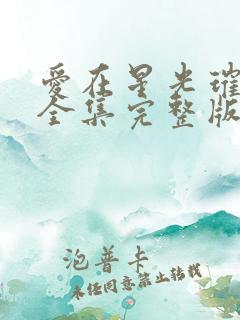 愛在星光璀
全集完整版
泡普卡
未经同意禁止转载